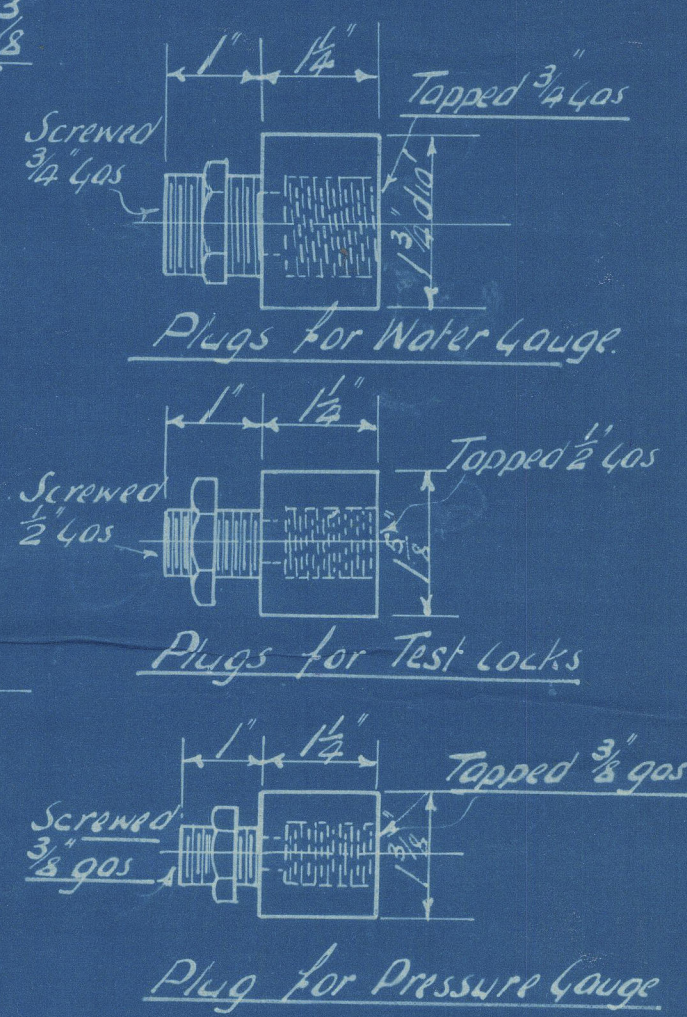 3/8
1" 1 1/4"
Tapped 3/4" Gas
Screwed
3/4" Gas
1 3/4" dia'
Plugs for Water Gauge.
1" 1 1/4"
Tapped 1/2" Gas
Screwed
1/2" Gas
1 5/8"
Plugs for Test Cocks
1" 1 1/4"
Tapped 3/8" gas
Screwed
3/8" gas
1 3/8"
Plug for Pressure Gauge